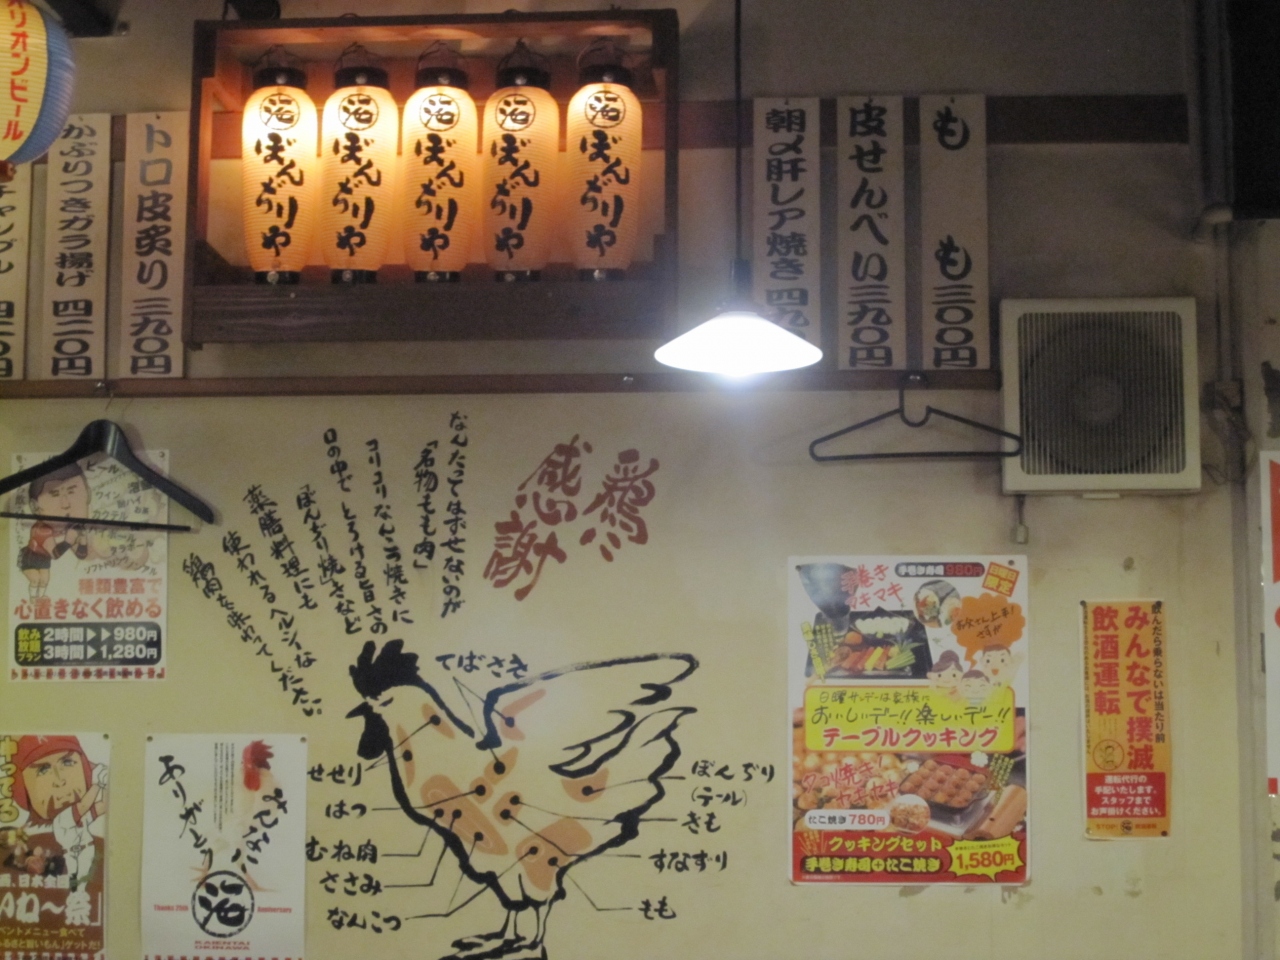 オリオンビール
かぶりつきガラ揚げ 四二〇円
トロ皮炙り 三九〇円
ぼんぢりや
ぼんぢりや
ぼんぢりや
ぼんぢりや
ぼんぢりや
朝〆肝レア焼き 四九
皮せんべい 三九〇円
もも 三〇〇円
鶏感謝
なんたってはずせないのが
「名物もも肉」
コリコリなんこつ焼きに
口の中でとろける旨さの
「ぼんぢり焼」さなど
薬膳料理にも
使われるヘルシーな
鶏肉を味わってください
てばさき
せせり
はつ
むね肉
ささみ
なんこつ
ぼんぢり
(テール)
きも
すなずり
もも
ビール
ワイン
カクテル
ハイボール
種類豊富で
心置きなく飲める
飲み放題プラン
2時間▶▶980円
3時間▶1,280円
みんなに
ありがとう
Thanks 25th Anniversary
KAIENTAI
OKINAWA
手巻き
マキマキ
手巻き寿司 980円
日曜日限定
日曜サンデーは家族で
おいしいデー!!楽しいデー!!
テーブルクッキング
たこ焼き 780円
クッキングセット
手巻き寿司+たこ焼き
1,580円
飲んだら乗らないは当たり前
みんなで撲滅
飲酒運転
運転代行の
手配いたします。
スタッフまで
お声掛けください。